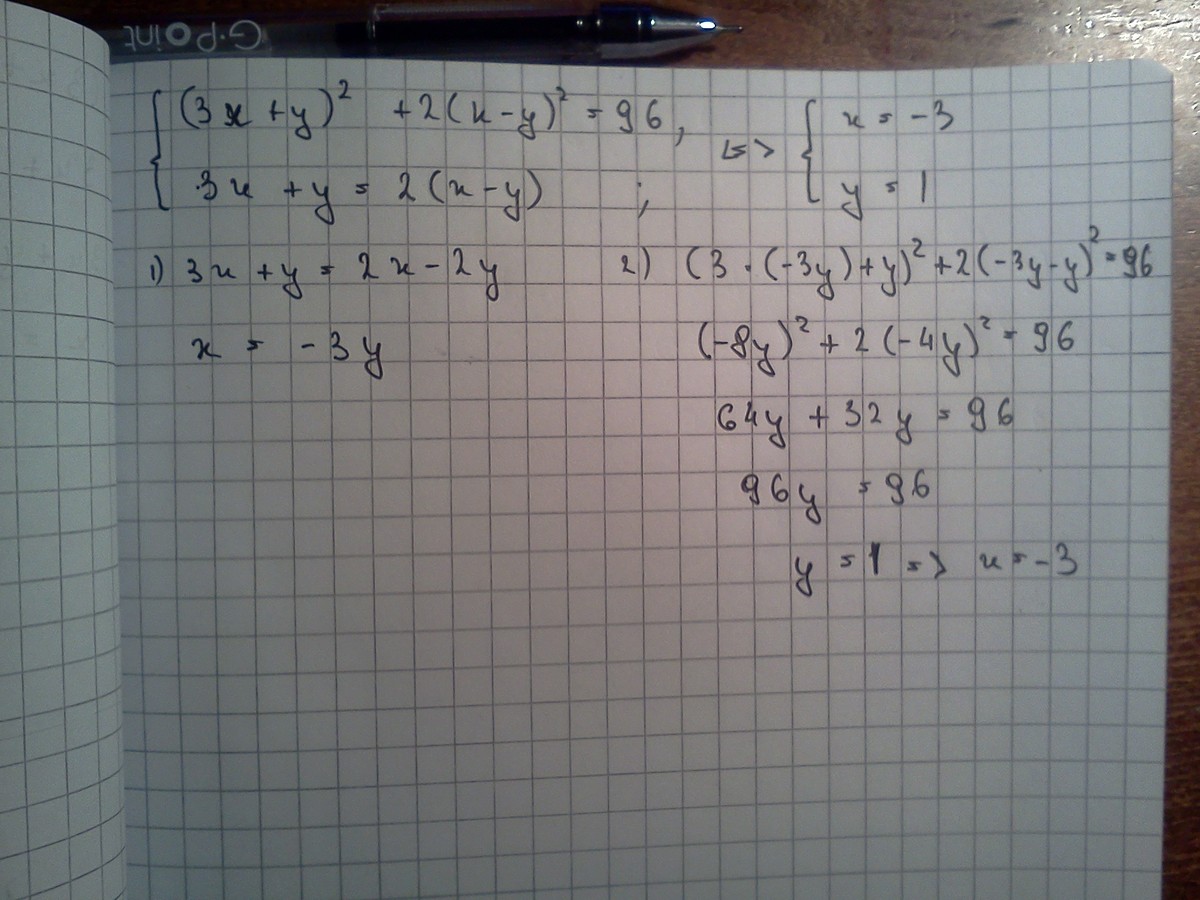 G-Point
(3x + y)² + 2(x - y)² = 96, <=> { x = -3
3x + y = 2(x - y) ; y = 1
1) 3x + y = 2x - 2y 2) (3 · (-3y) + y)² + 2(-3y - y)² = 96
x = -3y (-8y)² + 2(-4y)² = 96
64y + 32y = 96
96y = 96
y = 1 => x = -3